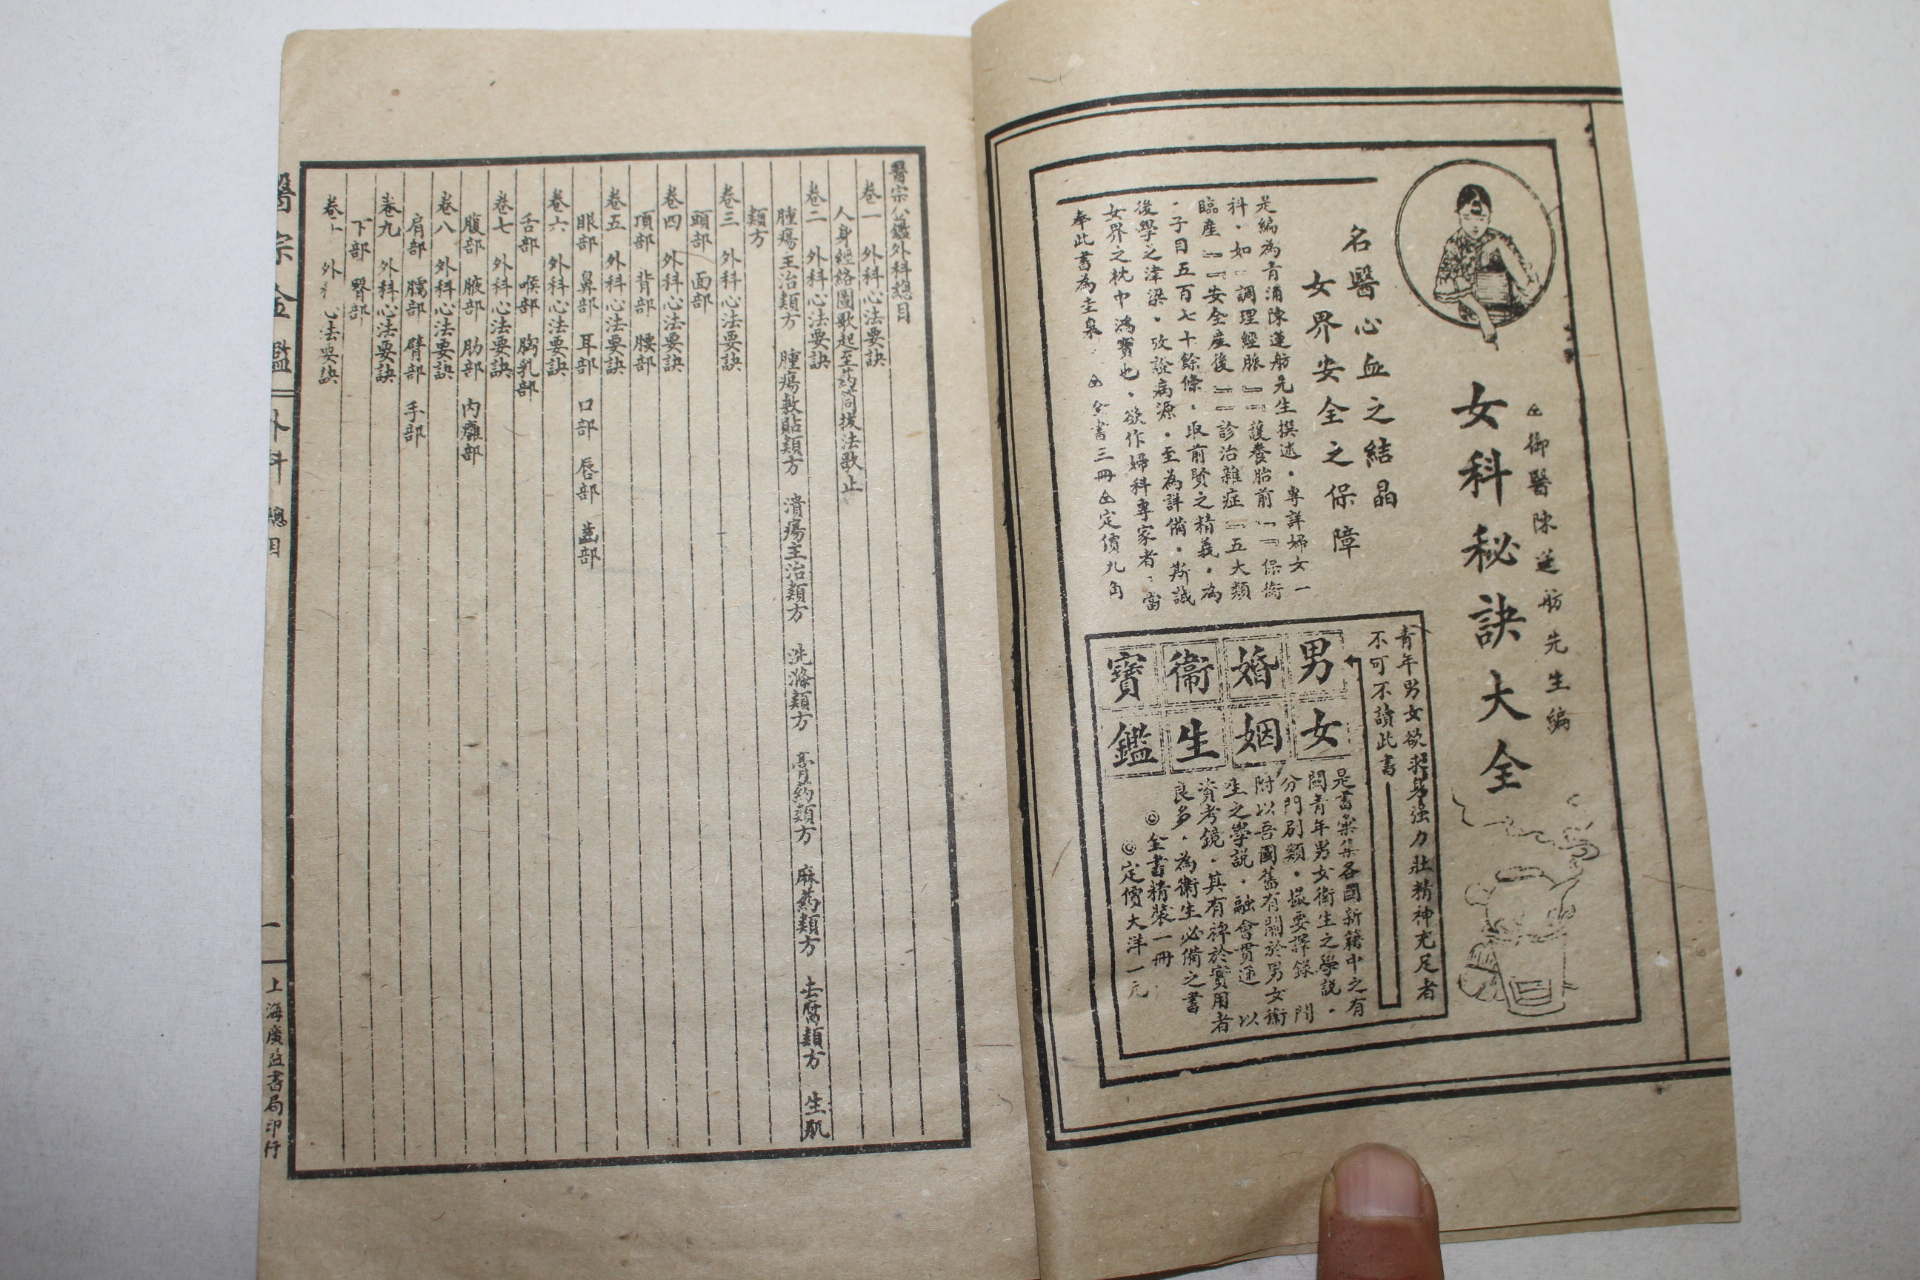 御醫陳蓮舫先生編
女科秘訣大全
名醫心血之結晶
女界安全之保障
是編為青浦陳蓮舫先生撰述·專詳婦女一
科·如『調理經脈』『護養胎前』『保衛
臨產』『安全產後』『診治雜症』五大類
·子目五百七十餘條·取前賢之精義·為
後學之津梁·攷證病源·至為詳備·斯誠
女界之枕中鴻寶也·欲作婦科專家者·當
奉此書為圭臬·全書三冊 定價九角
青年男女欲求身強力壯精神充足者
不可不讀此書
男女
婚姻
衞生
寶鑑
是書彙集各國新籍中之有
關青年男女衛生之學說·
分門別類·撮要譯錄 門
附以吾國舊有關於男女衛
生之學說·融會貫通 以
資考鏡·其有裨於實用者
良多·為衛生必備之書
全書精裝一冊
定價大洋一元
醫宗金鑑外科總目
卷一 外科心法要訣
人身經絡圖歌起至药筒拔法歌止
卷二 外科心法要訣
腫瘍主治類方 腫瘍敷貼類方 潰瘍主治類方 洗滌類方 膏药類方 麻药類方 去腐類方 生肌
類方
卷三 外科心法要訣
頭部 面部
卷四 外科心法要訣
項部 背部 腰部
卷五 外科心法要訣
眼部 鼻部 耳部 口部 唇部 齒部
卷六 外科心法要訣
舌部 喉部 胸乳部
卷七 外科心法要訣
腹部 腋部 肋部 內癰部
卷八 外科心法要訣
肩部 臑部 臂部 手部
卷九 外科心法要訣
下部 臀部
卷十 外科心法要訣
醫宗金鑑 外科 總目 一 上海廣益書局印行